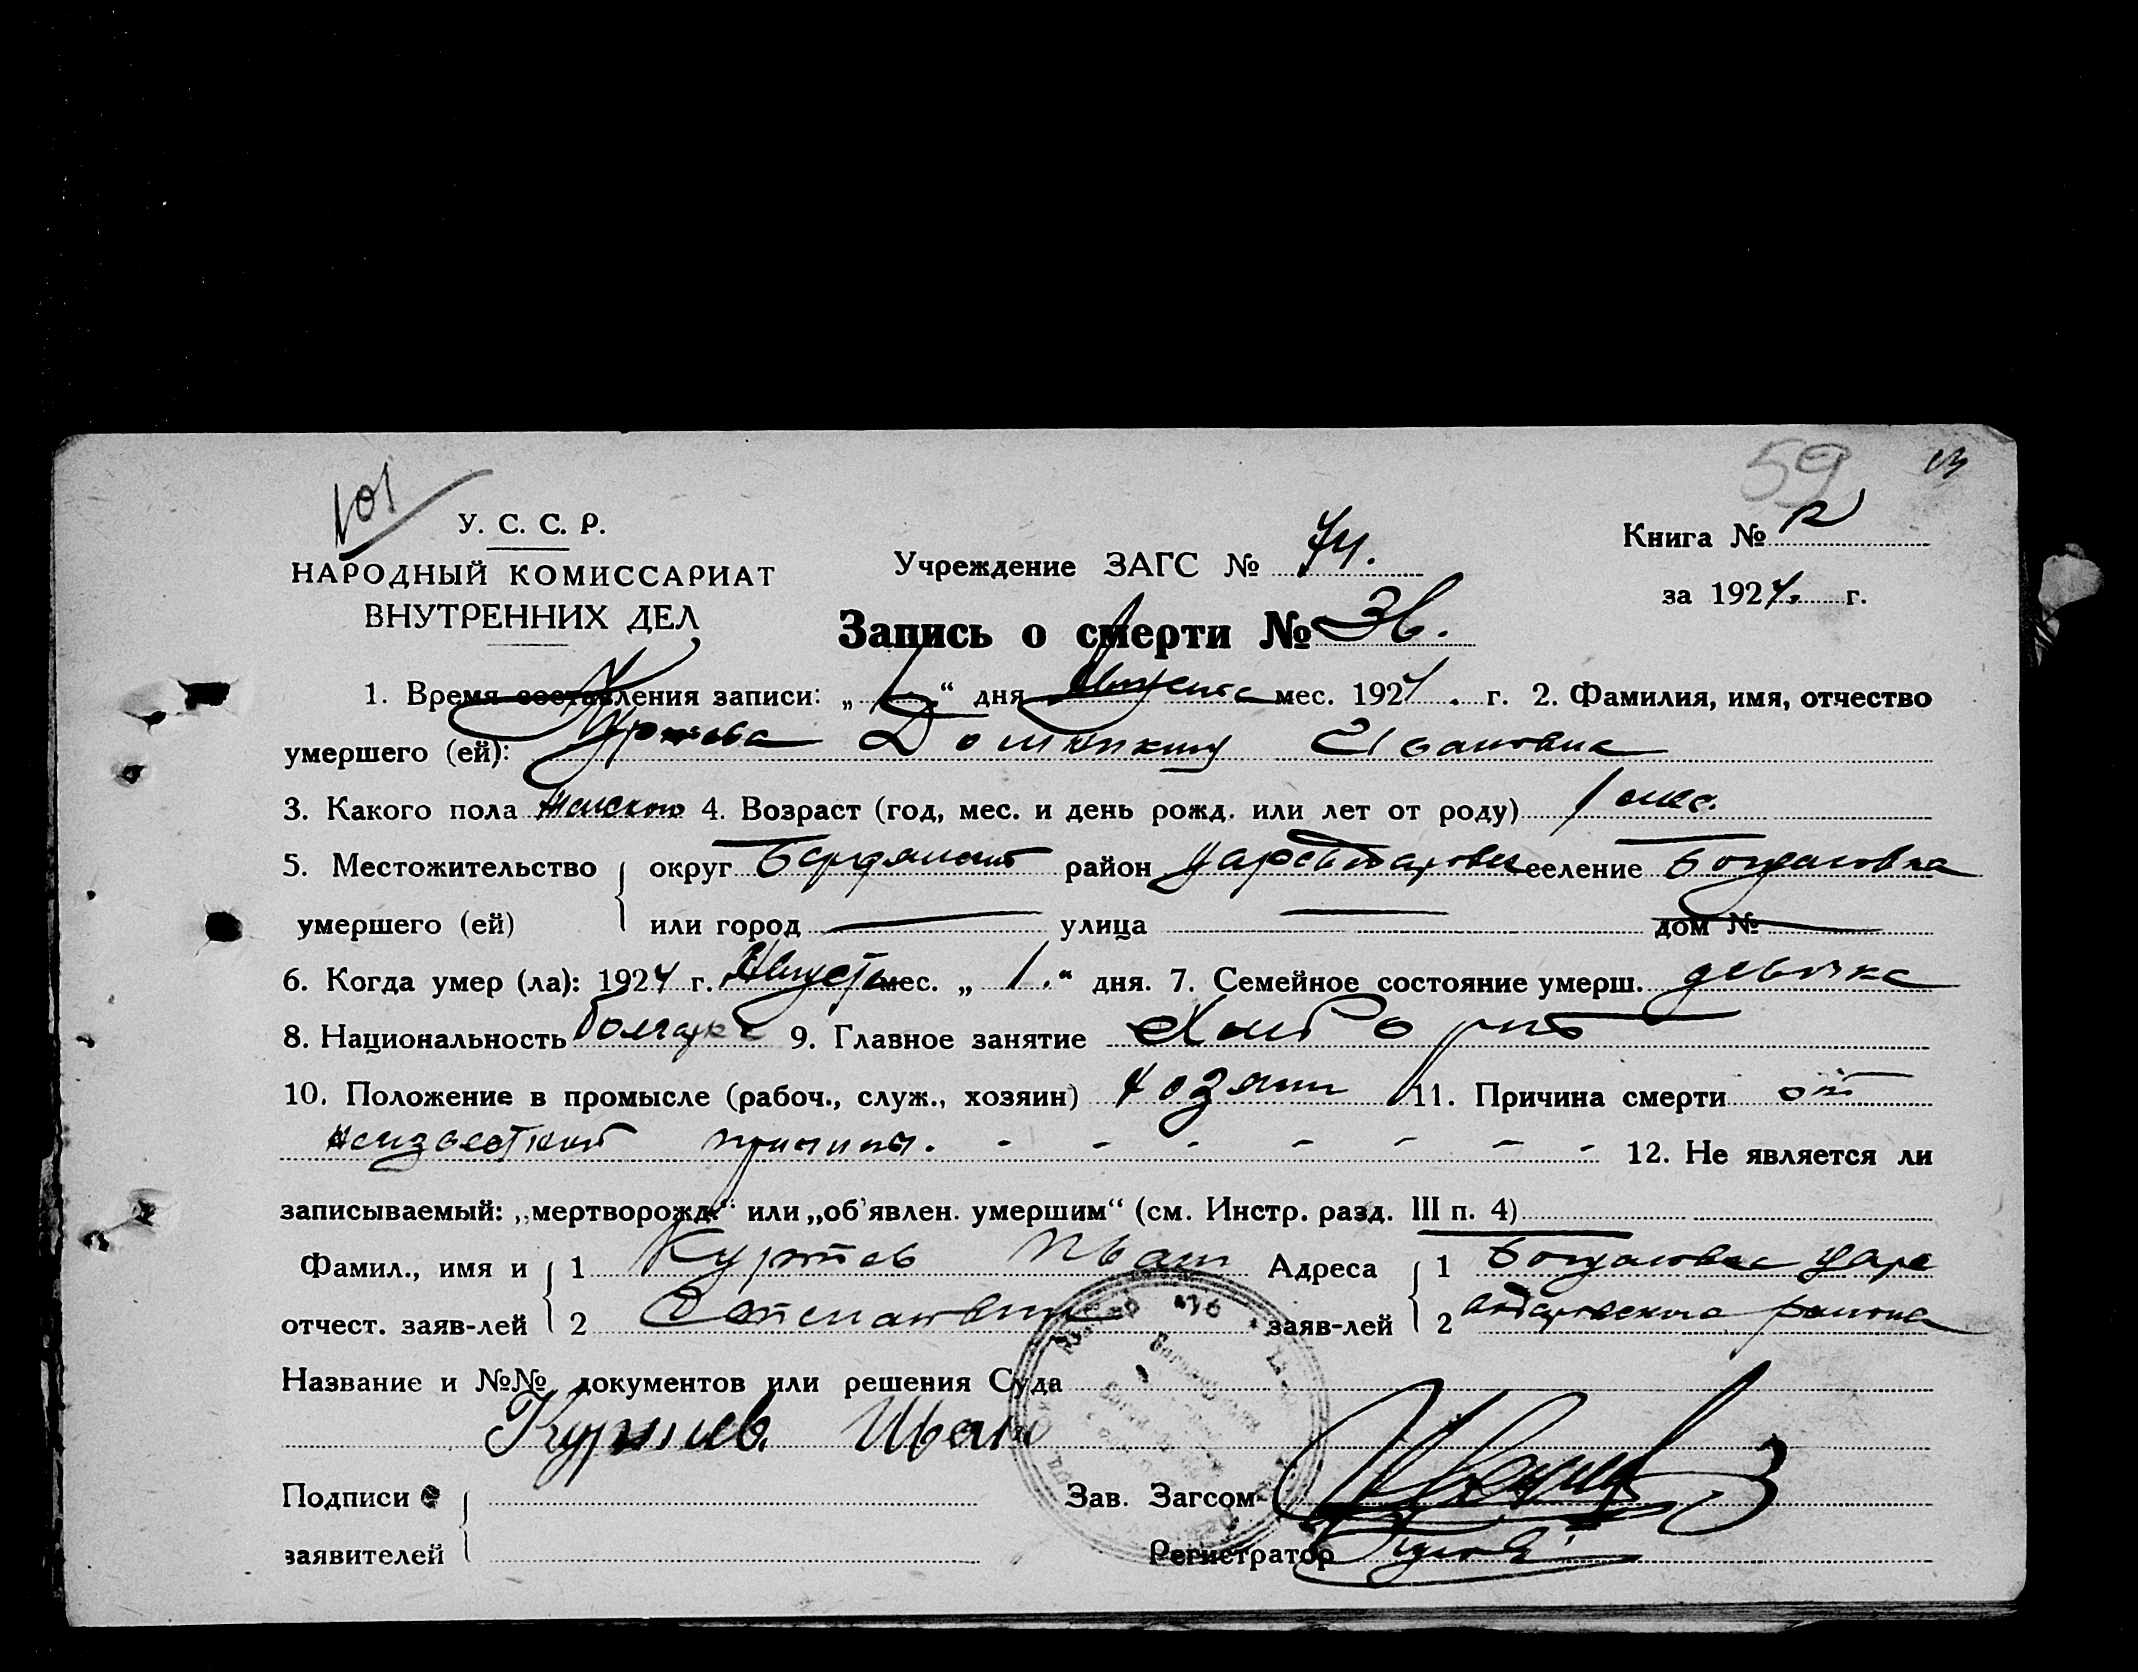 59
101
У. С. С. Р.
НАРОДНЫЙ КОМИССАРИАТ
ВНУТРЕННИХ ДЕЛ
Учреждение ЗАГС № 74.
Книга № 2
за 1924. г.
Запись о смерти № 36.
1. Время составления записи: „ “ дня Августа мес. 1924. г. 2. Фамилия, имя, отчество
умершего (ей): Куртева Ивановна
3. Какого пола женского 4. Возраст (год, мес. и день рожд. или лет от роду) 1 мес.
5. Местожительство округ Бердянский район Цареводаровск селение Богдановка
умершего (ей) или город — улица — дом № —
6. Когда умер (ла): 1924 г. Августа мес. „ 1. “ дня. 7. Семейное состояние умерш. девочка
8. Национальность болгарка 9. Главное занятие Хлебороб
10. Положение в промысле (рабоч., служ., хозяин) хозяин 11. Причина смерти от
неизвестной причины. - - - - - - - 12. Не является ли
записываемый: „мертворожд.“ или „об'явлен. умершим“ (см. Инстр. разд. III п. 4) —
Фамил., имя и 1 Куртев Иван Адреса 1 Богдановка Царе
отчест. заяв-лей 2 Степанович заяв-лей 2 района
Название и №№ документов или решения Суда
Куртев Иван
Подписи Зав. Загсом
заявителей Регистратор